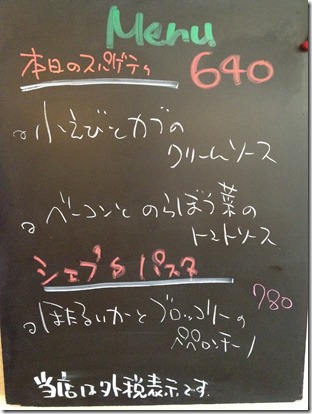 Menu
本日のスパゲティ 640
小えびとカブの
クリームソース
ベーコンと のらぼう菜の
トマトソース
シェフ's パスタ
ほたるいかと ブロッコリーの 780
ペペロンチーノ
当店は外税表示です